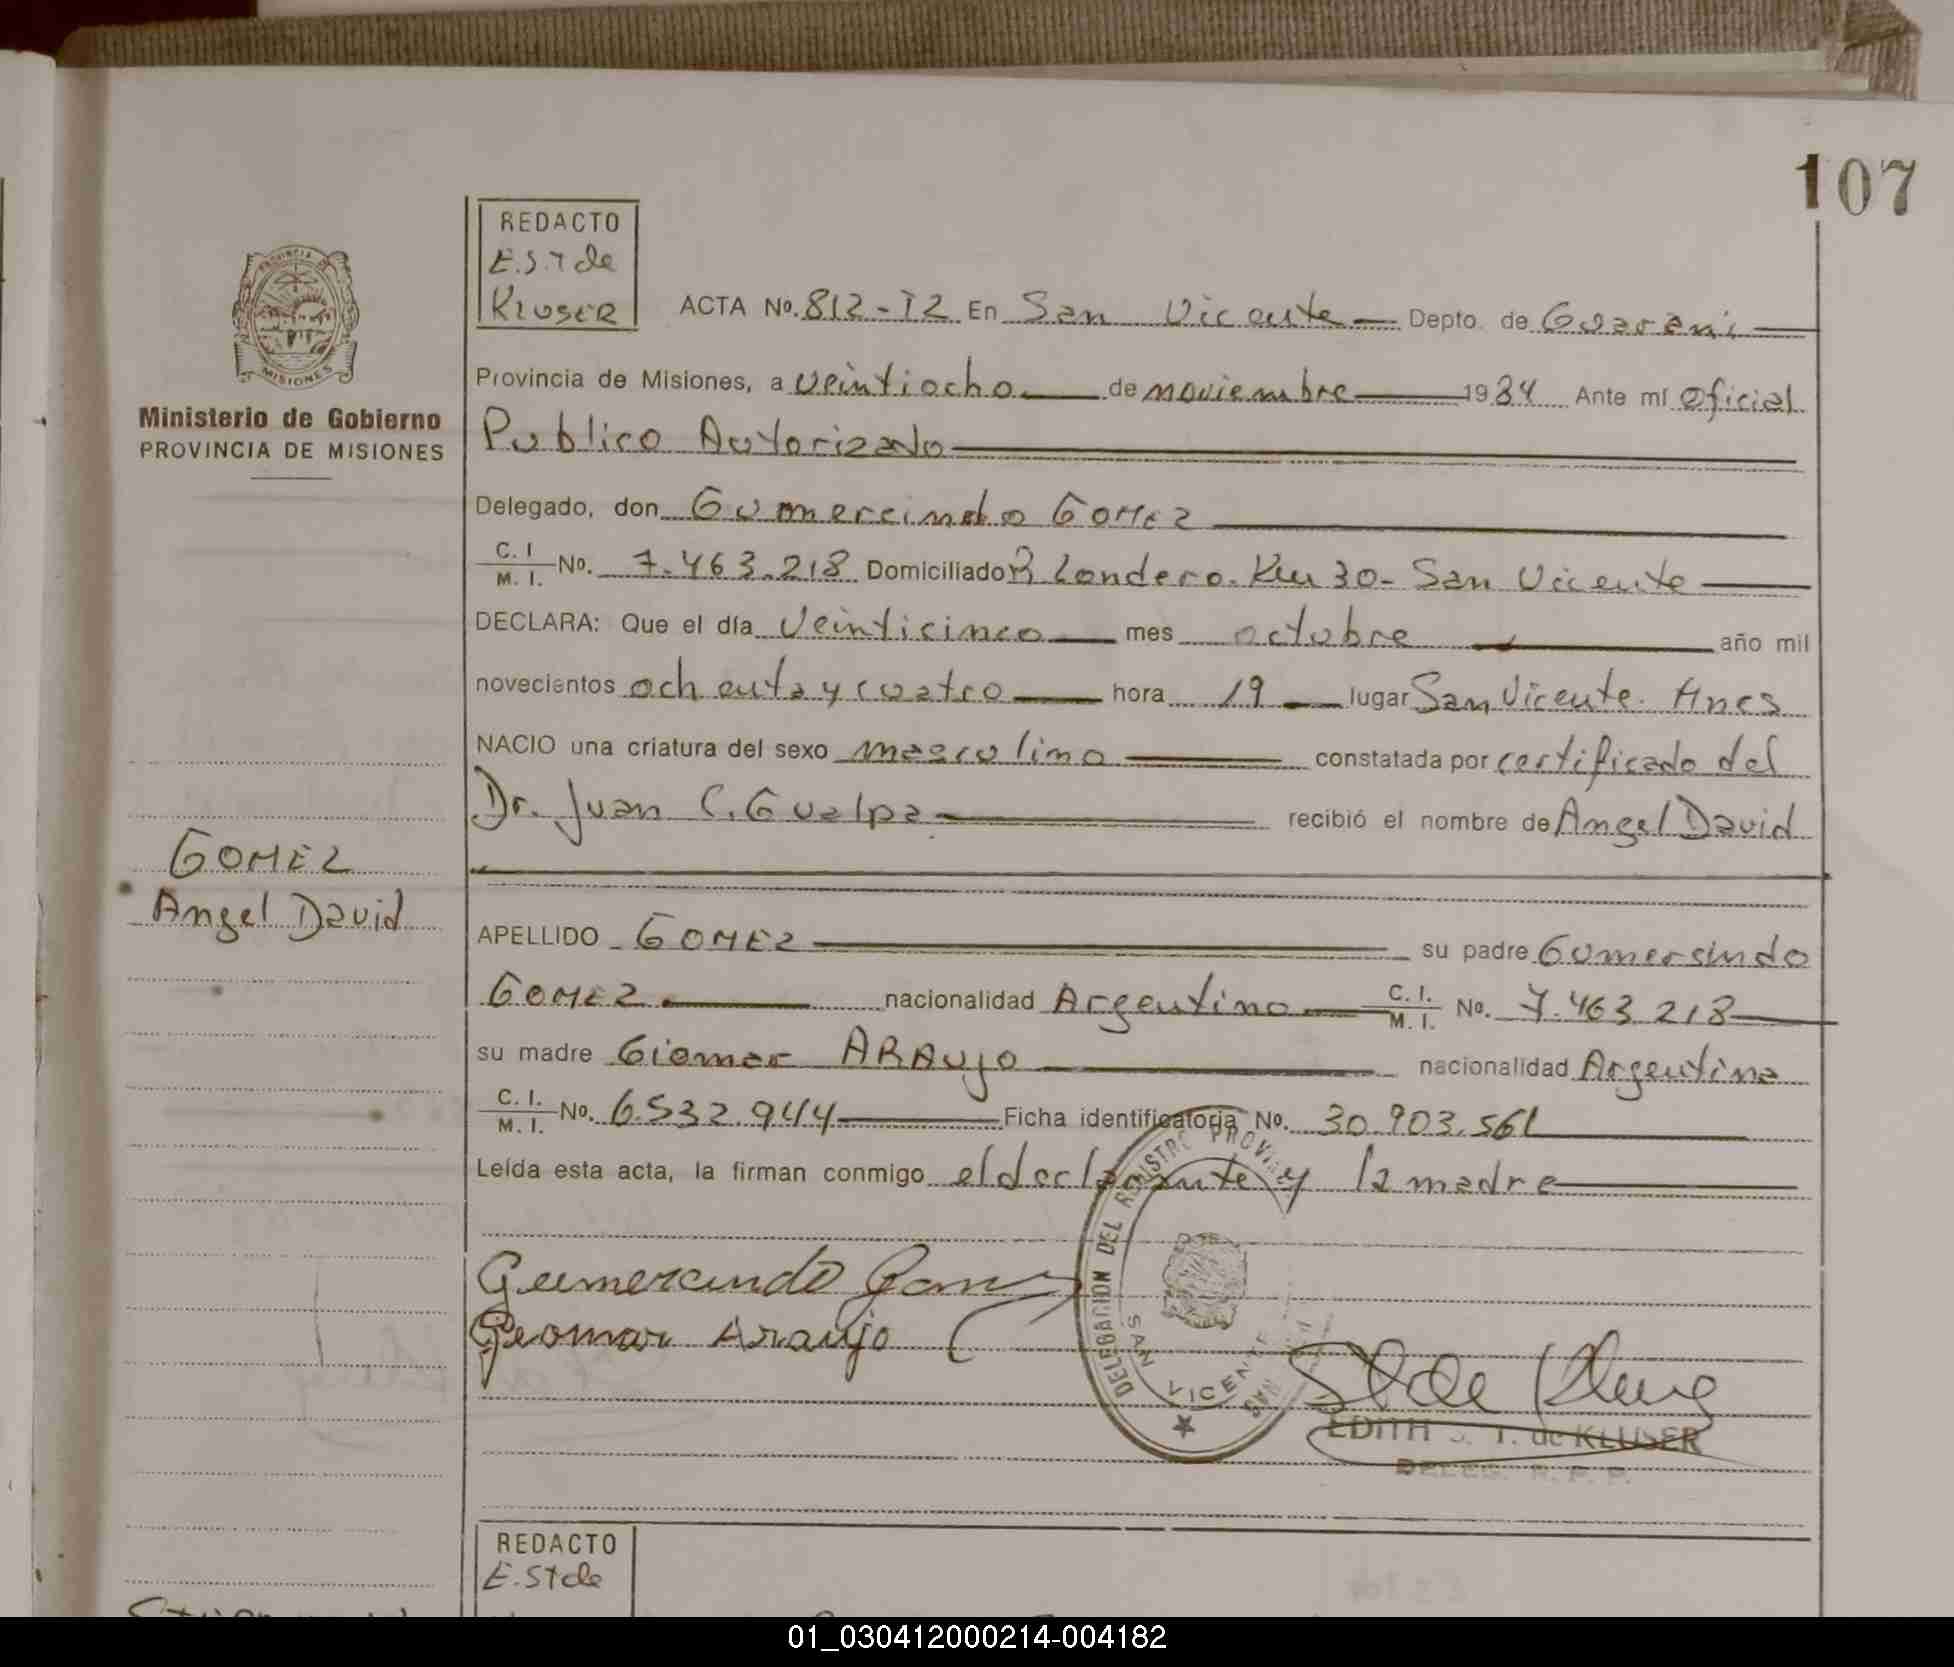 107
REDACTO
E.S.T de
KLUSER
ACTA No. 812-T2 En San Vicente Depto. de Guarani
Provincia de Misiones, a veintiocho de noviembre 1984 Ante mí Oficial
Ministerio de Gobierno
PROVINCIA DE MISIONES
Publico Autorizado
Delegado, don Gumercindo GOMEZ
C. I. M. I. No. 7.463.218 Domiciliado Londero. Km 30- San Vicente
DECLARA: Que el día veinticinco mes octubre año mil
novecientos ochenta y cuatro hora 19 lugar San Vicente. Mnes
NACIO una criatura del sexo masculino constatada por certificado del
Dr. Juan C. Gualpa recibió el nombre de Angel David
GOMEZ
Angel David
APELLIDO GOMEZ su padre Gumersindo
GOMEZ nacionalidad Argentino C. I. M. I. No. 7.463.218
su madre Giomar ARAUJO nacionalidad Argentina
C. I. M. I. No. 6.532.944 Ficha identificatoria No. 30.903.561
Leída esta acta, la firman conmigo el declarante y la madre
Gumercindo Gomez
Geomar Araujo
DELEGACION DEL REGISTRO PROVIN
SAN VICENTE
EDITH S. T. de KLUSER
DELEG. R. P. P.
REDACTO
E. ST de
01_030412000214-004182